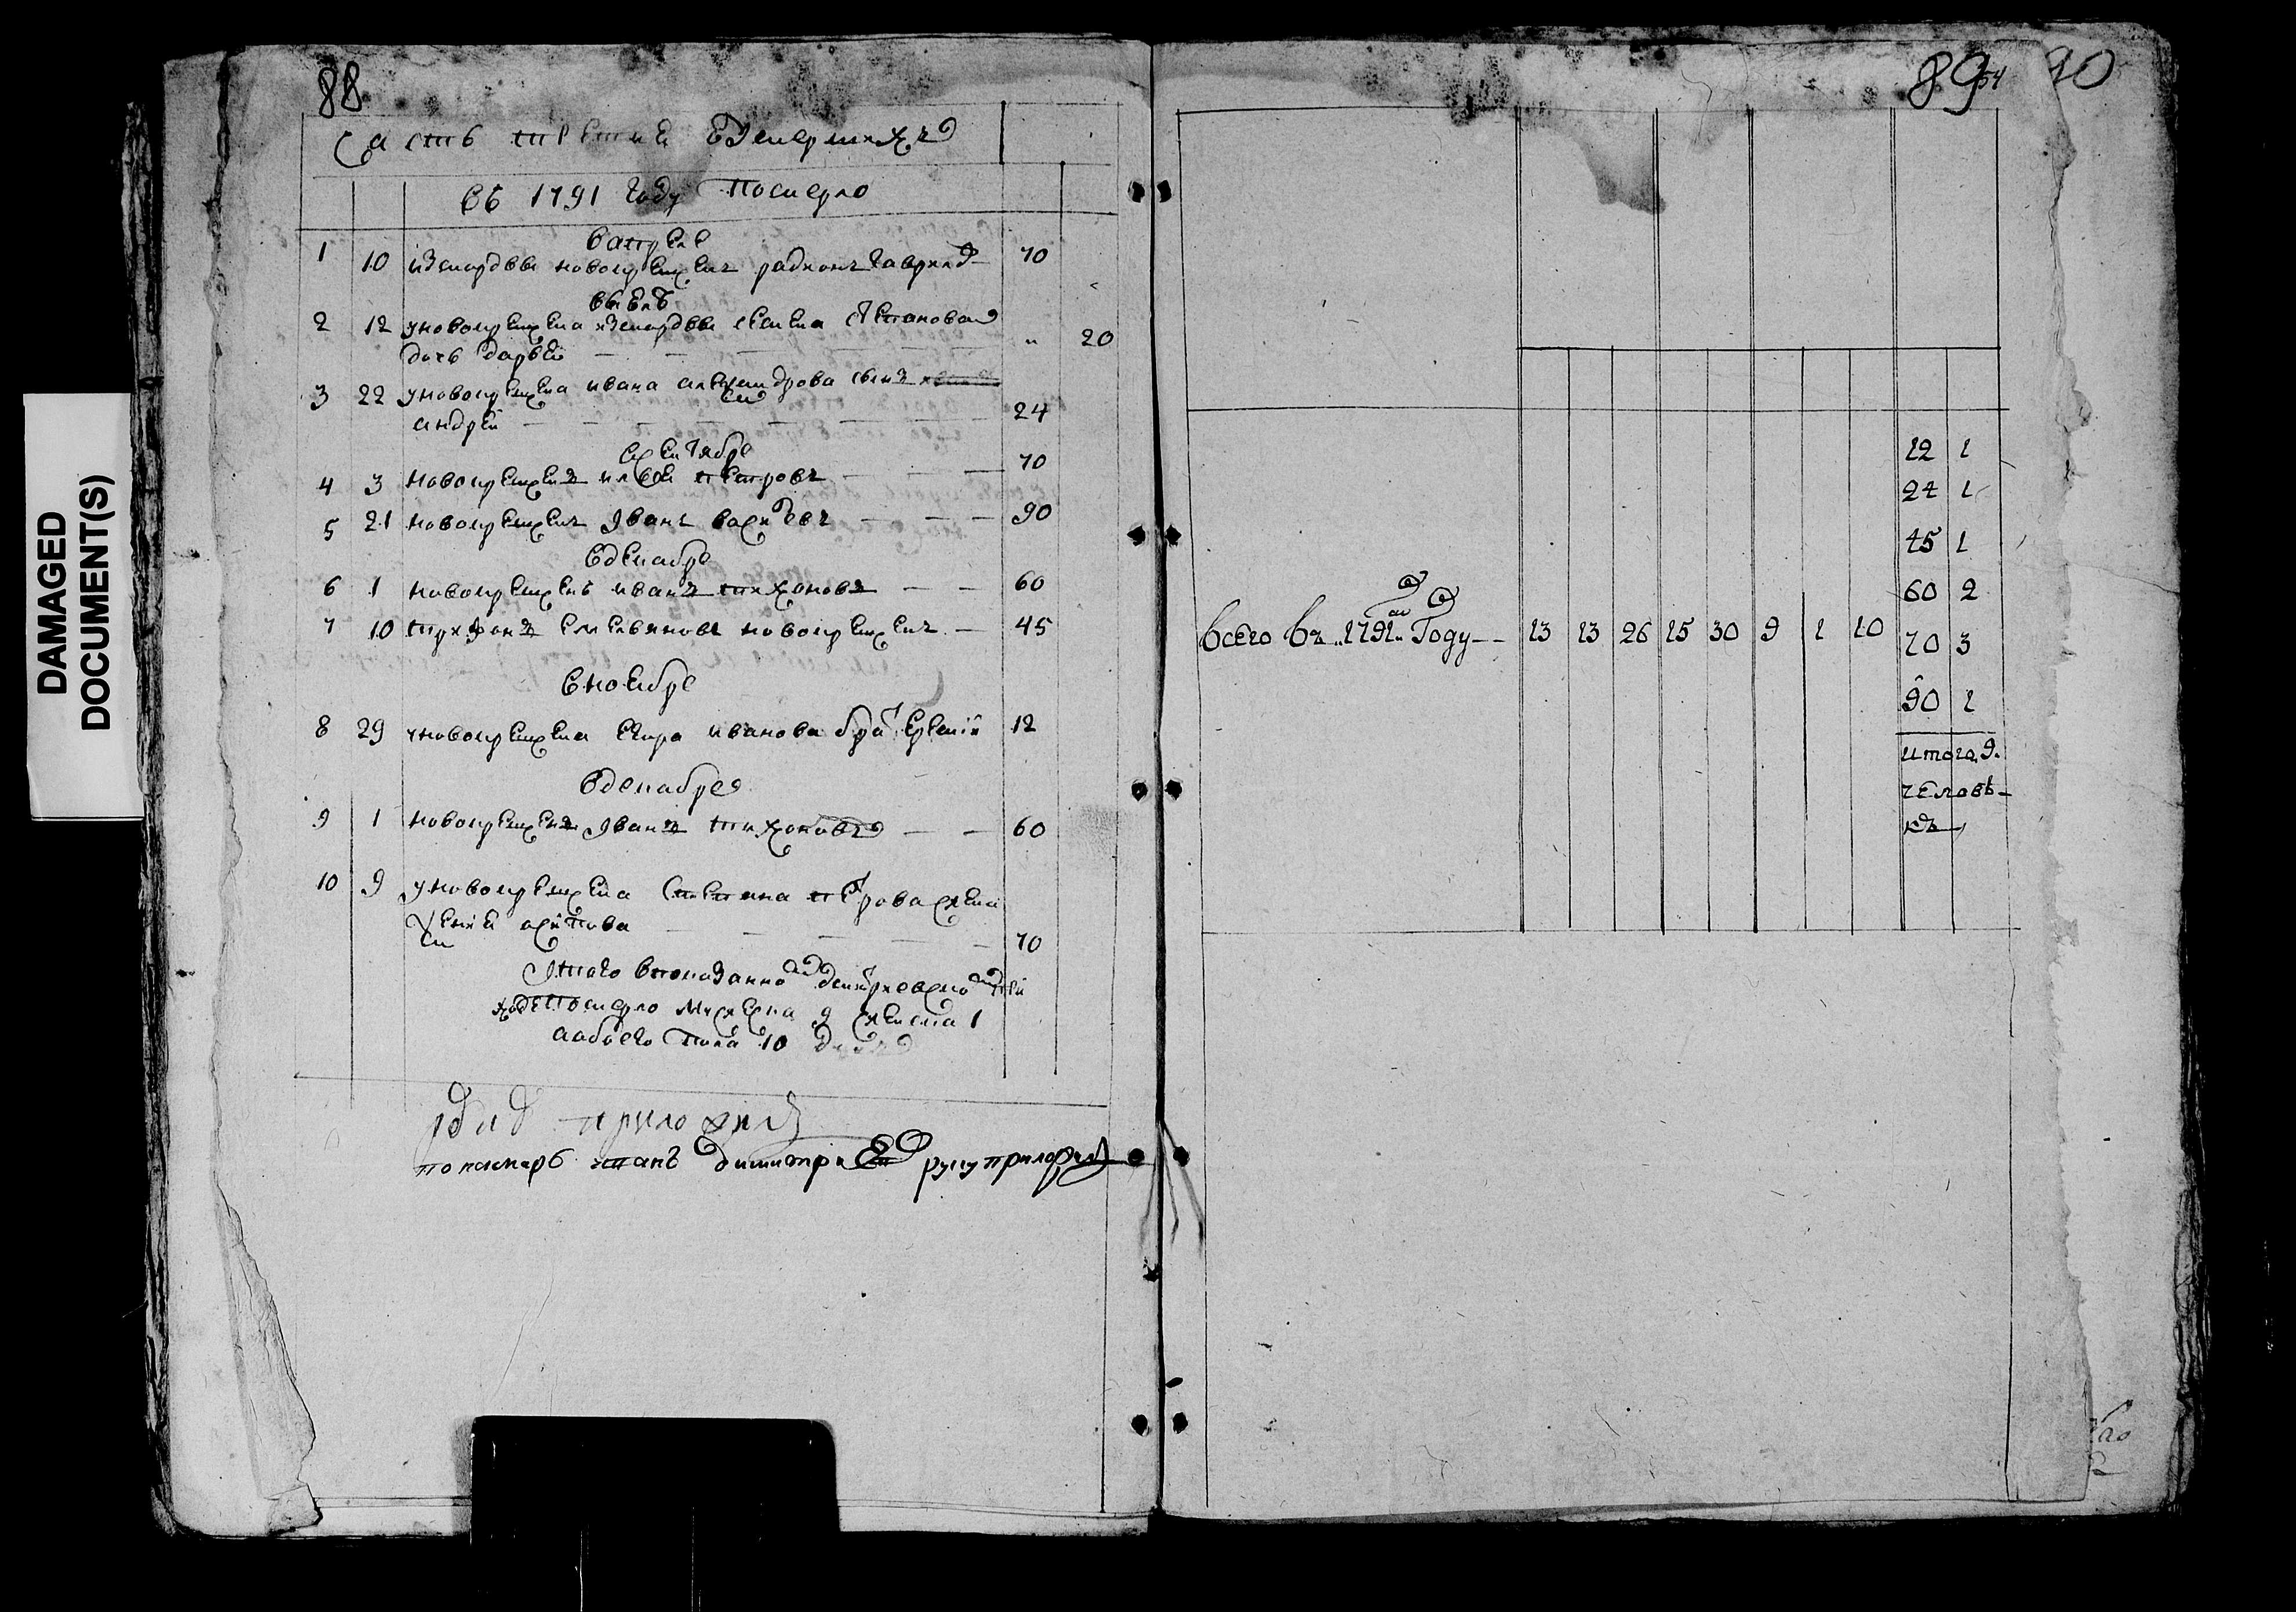 DAMAGED
DOCUMENT(S)
88
Часть третия о умерших
въ 1791 году Померло
в апреле
1 10 из мордвы новокрещенъ радионъ гаврилов 70
в июле
2 12 у новокрещена из мордвы семена степанова
дочь дарья — — — — " 20
3 22 у новокрещена ивана александрова сынъ
андрей — — — — 24
сентябре
4 3 новокрещенъ илья петровъ — — 70
5 21 новокрещенъ иванъ васильевъ — — — 90
6 1 новокрещенъ иванъ тихоновъ — — 60
7 10 трифонъ емельяновъ новокрещенъ — 45
в ноябре
8 29 у новокрещена егора иванова братъ 12
в декабре
9 1 новокрещенъ иванъ тихоновъ — — 60
10 9 у новокрещена степана петрова жена
осипова — — — — — 70
Итого
померло мужеска 9 женска 1
а обоего пола 10 душъ
приложил
пономарь степанъ димитриевъ руку приложилъ
89 54
90
Всего въ 1791м Году — 13 13 26 15 30 9 1 10
12 1
24 1
45 1
60 2
70 3
90 1
итого 9.
человѣ–
къ